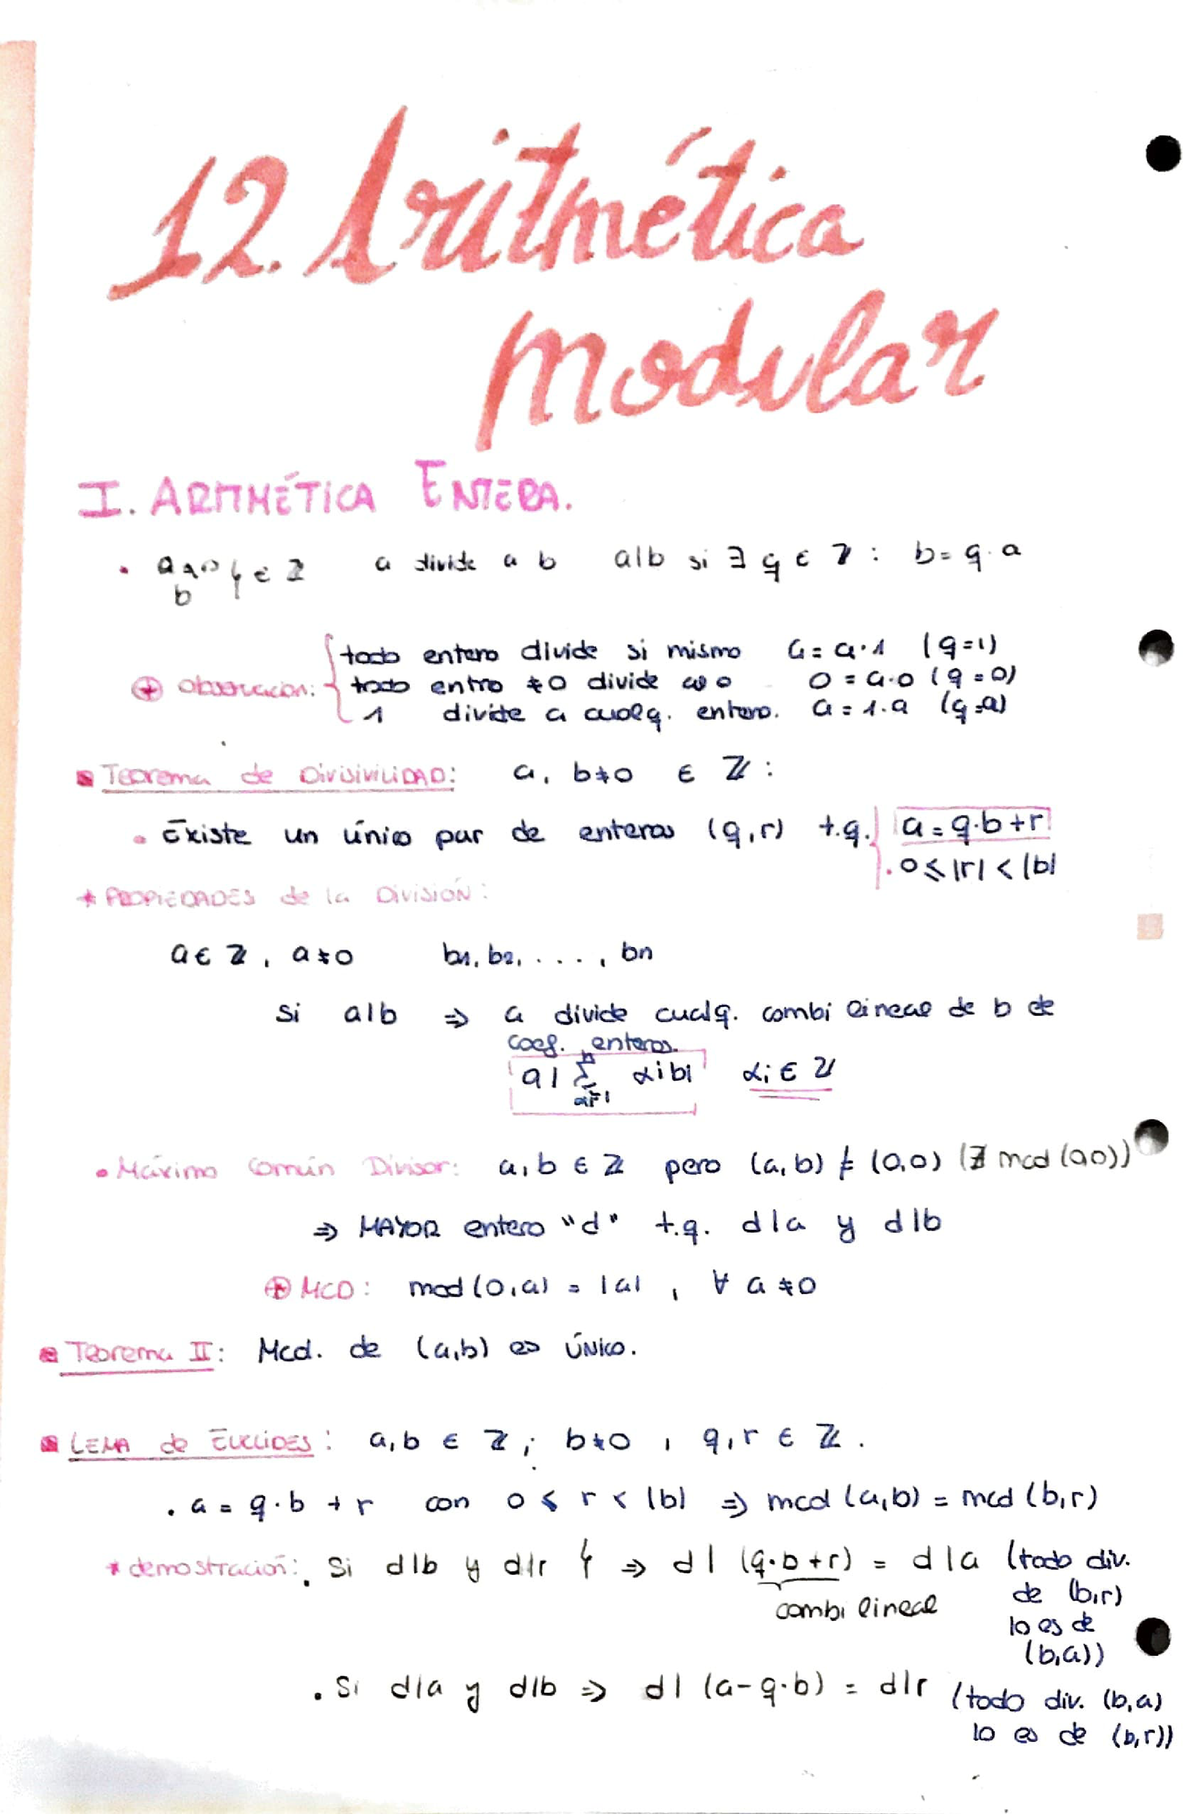 12. Aritmética
Modular
I. ARITMÉTICA ENTERA.
• a≠0 } ∈ ℤ a divide a b a|b si ∃ q ∈ ℤ : b = q·a
b
todo entero divide si mismo a = a·1 (q=1)
⊕ Observación: { todo entro ≠0 divide a 0 0 = a·0 (q=0)
1 divide a cualq. entero. a = 1·a (q=a)
Teorema de DIVISIVILIDAD: a, b≠0 ∈ ℤ :
• Existe un único par de enteros (q,r) t.q. { a = q·b+r
• 0 ≤ |r| < |b|
* PROPIEDADES de la DIVISIÓN:
a ∈ ℤ, a≠0 b1, b2, ..., bn
Si a|b ⇒ a divide cualq. combi lineal de b de
coef. enteros.
a | Σ αibi αi ∈ ℤ
• Máximo Común Divisor: a,b ∈ ℤ pero (a,b) ≠ (0,0) (∄ mcd (0,0))
⇒ MAYOR entero "d" t.q. d|a y d|b
⊕ MCD: mcd (0,a) = |a|, ∀ a ≠0
Teorema II: Mcd. de (a,b) es ÚNICO.
LEMA de EUCLIDES: a,b ∈ ℤ; b≠0, q,r ∈ ℤ.
• a = q·b + r con 0 ≤ r < |b| ⇒ mcd (a,b) = mcd (b,r)
* demostración: • Si d|b y d|r } ⇒ d| (q·b+r) = d|a (todo div.
combi lineal de (b,r)
lo es de
(b,a))
• Si d|a y d|b ⇒ d| (a-q·b) = d|r (todo div. (b,a)
lo es de (b,r))